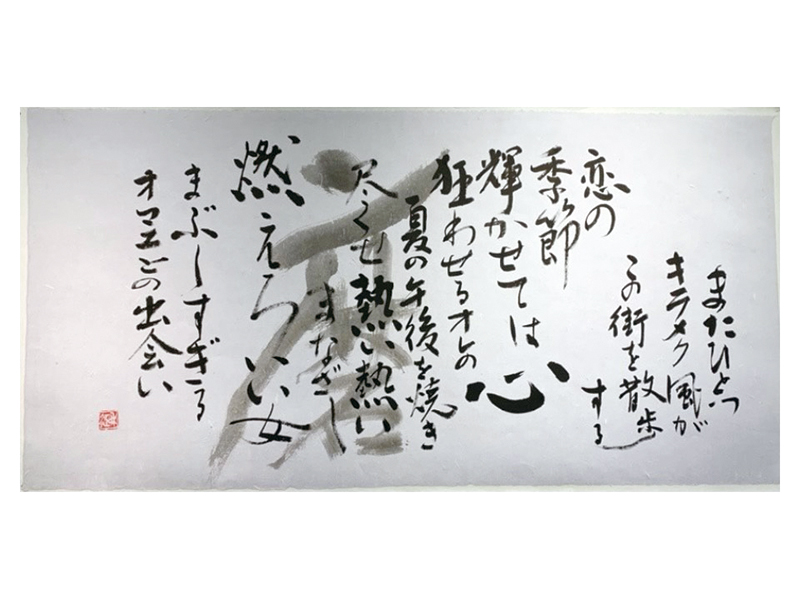 またひとつ
キラメク風が
この街を散歩
する
恋の
季節
輝かせては
心
狂わせるオレの
夏の午後を焼き
尽くせ熱い熱い
まなざし
燃えろいい女
まぶしすぎる
オマエとの出会い